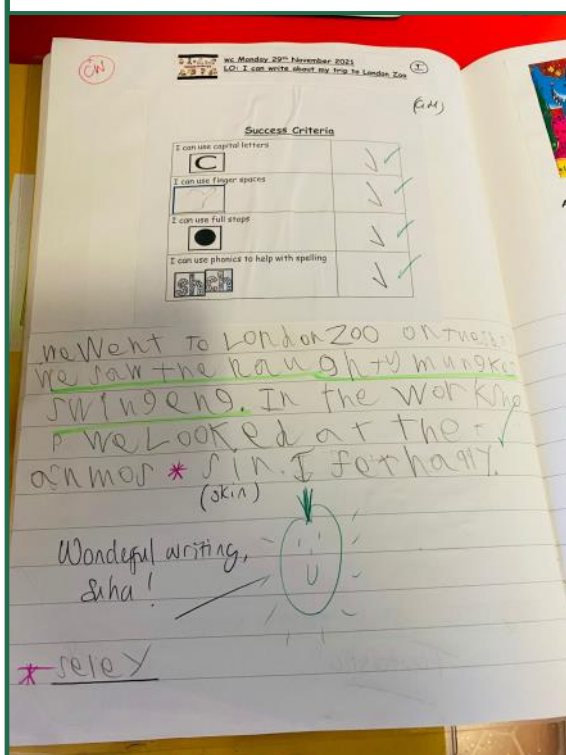 CW
wc Monday 29th November 2021
LO: I can write about my trip to London Zoo
I
(GM)
Success Criteria
I can use capital letters
C
I can use finger spaces
I can use full stops
I can use phonics to help with spelling
sh ch
we Went To London Zoo on tues
we saw the naughty mungkes
swingeng. In the worksho
p we Looked at the
anmos * sin. I fet happy.
(skin)
Wonderful writing,
* seley